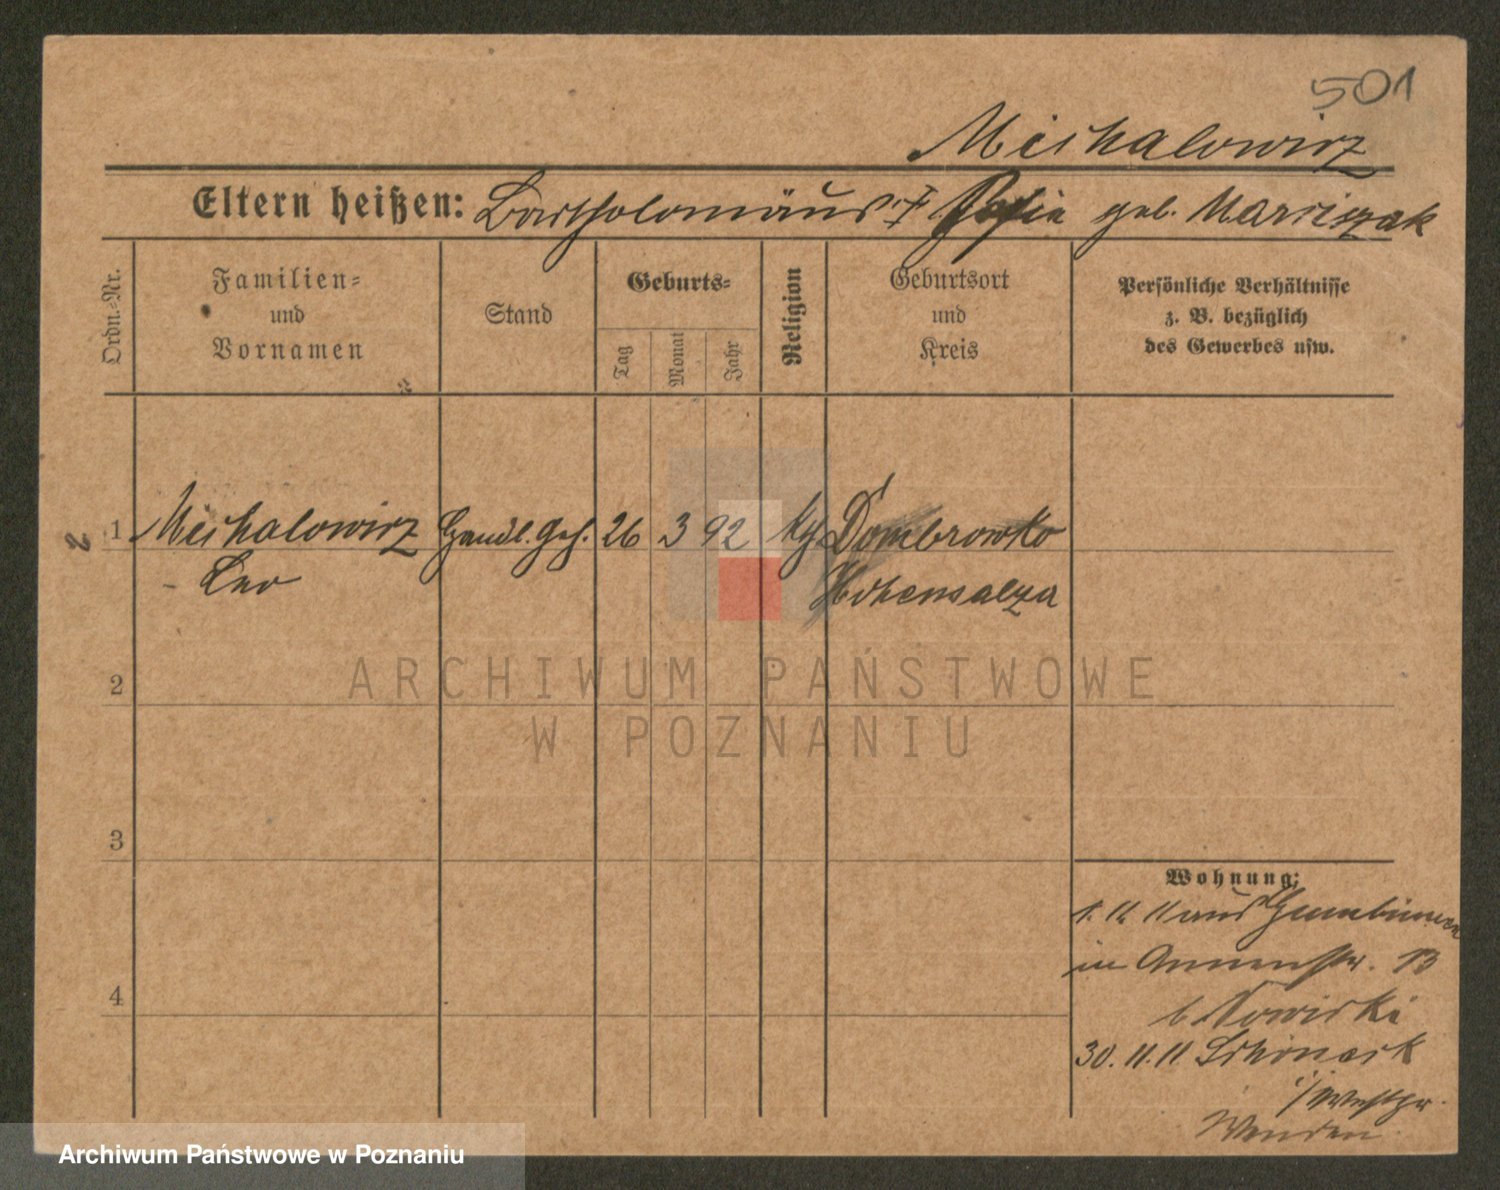 501
Michalowicz
Eltern heißen: Bartholomäus u. Sofie geb. Marciszak
Ordn.-Nr.
Familien-
und
Vornamen
Stand
Geburts-
Tag
Monat
Jahr
Religion
Geburtsort
und
Kreis
Persönliche Verhältnisse
z. B. bezüglich
des Gewerbes usw.
1 Michalowicz Handl. Geh. 26 3 92 kth Dombrowko
Leo Hohensalza
2
3
4
Wohnung:
1. 11. 11 aus Gumbinnen
in Annenstr. 13
b Nowicki
30. 11. 11 Schöneck
i/ Westpr.
ARCHIWUM PAŃSTWOWE
W POZNANIU
Archiwum Państwowe w Poznaniu